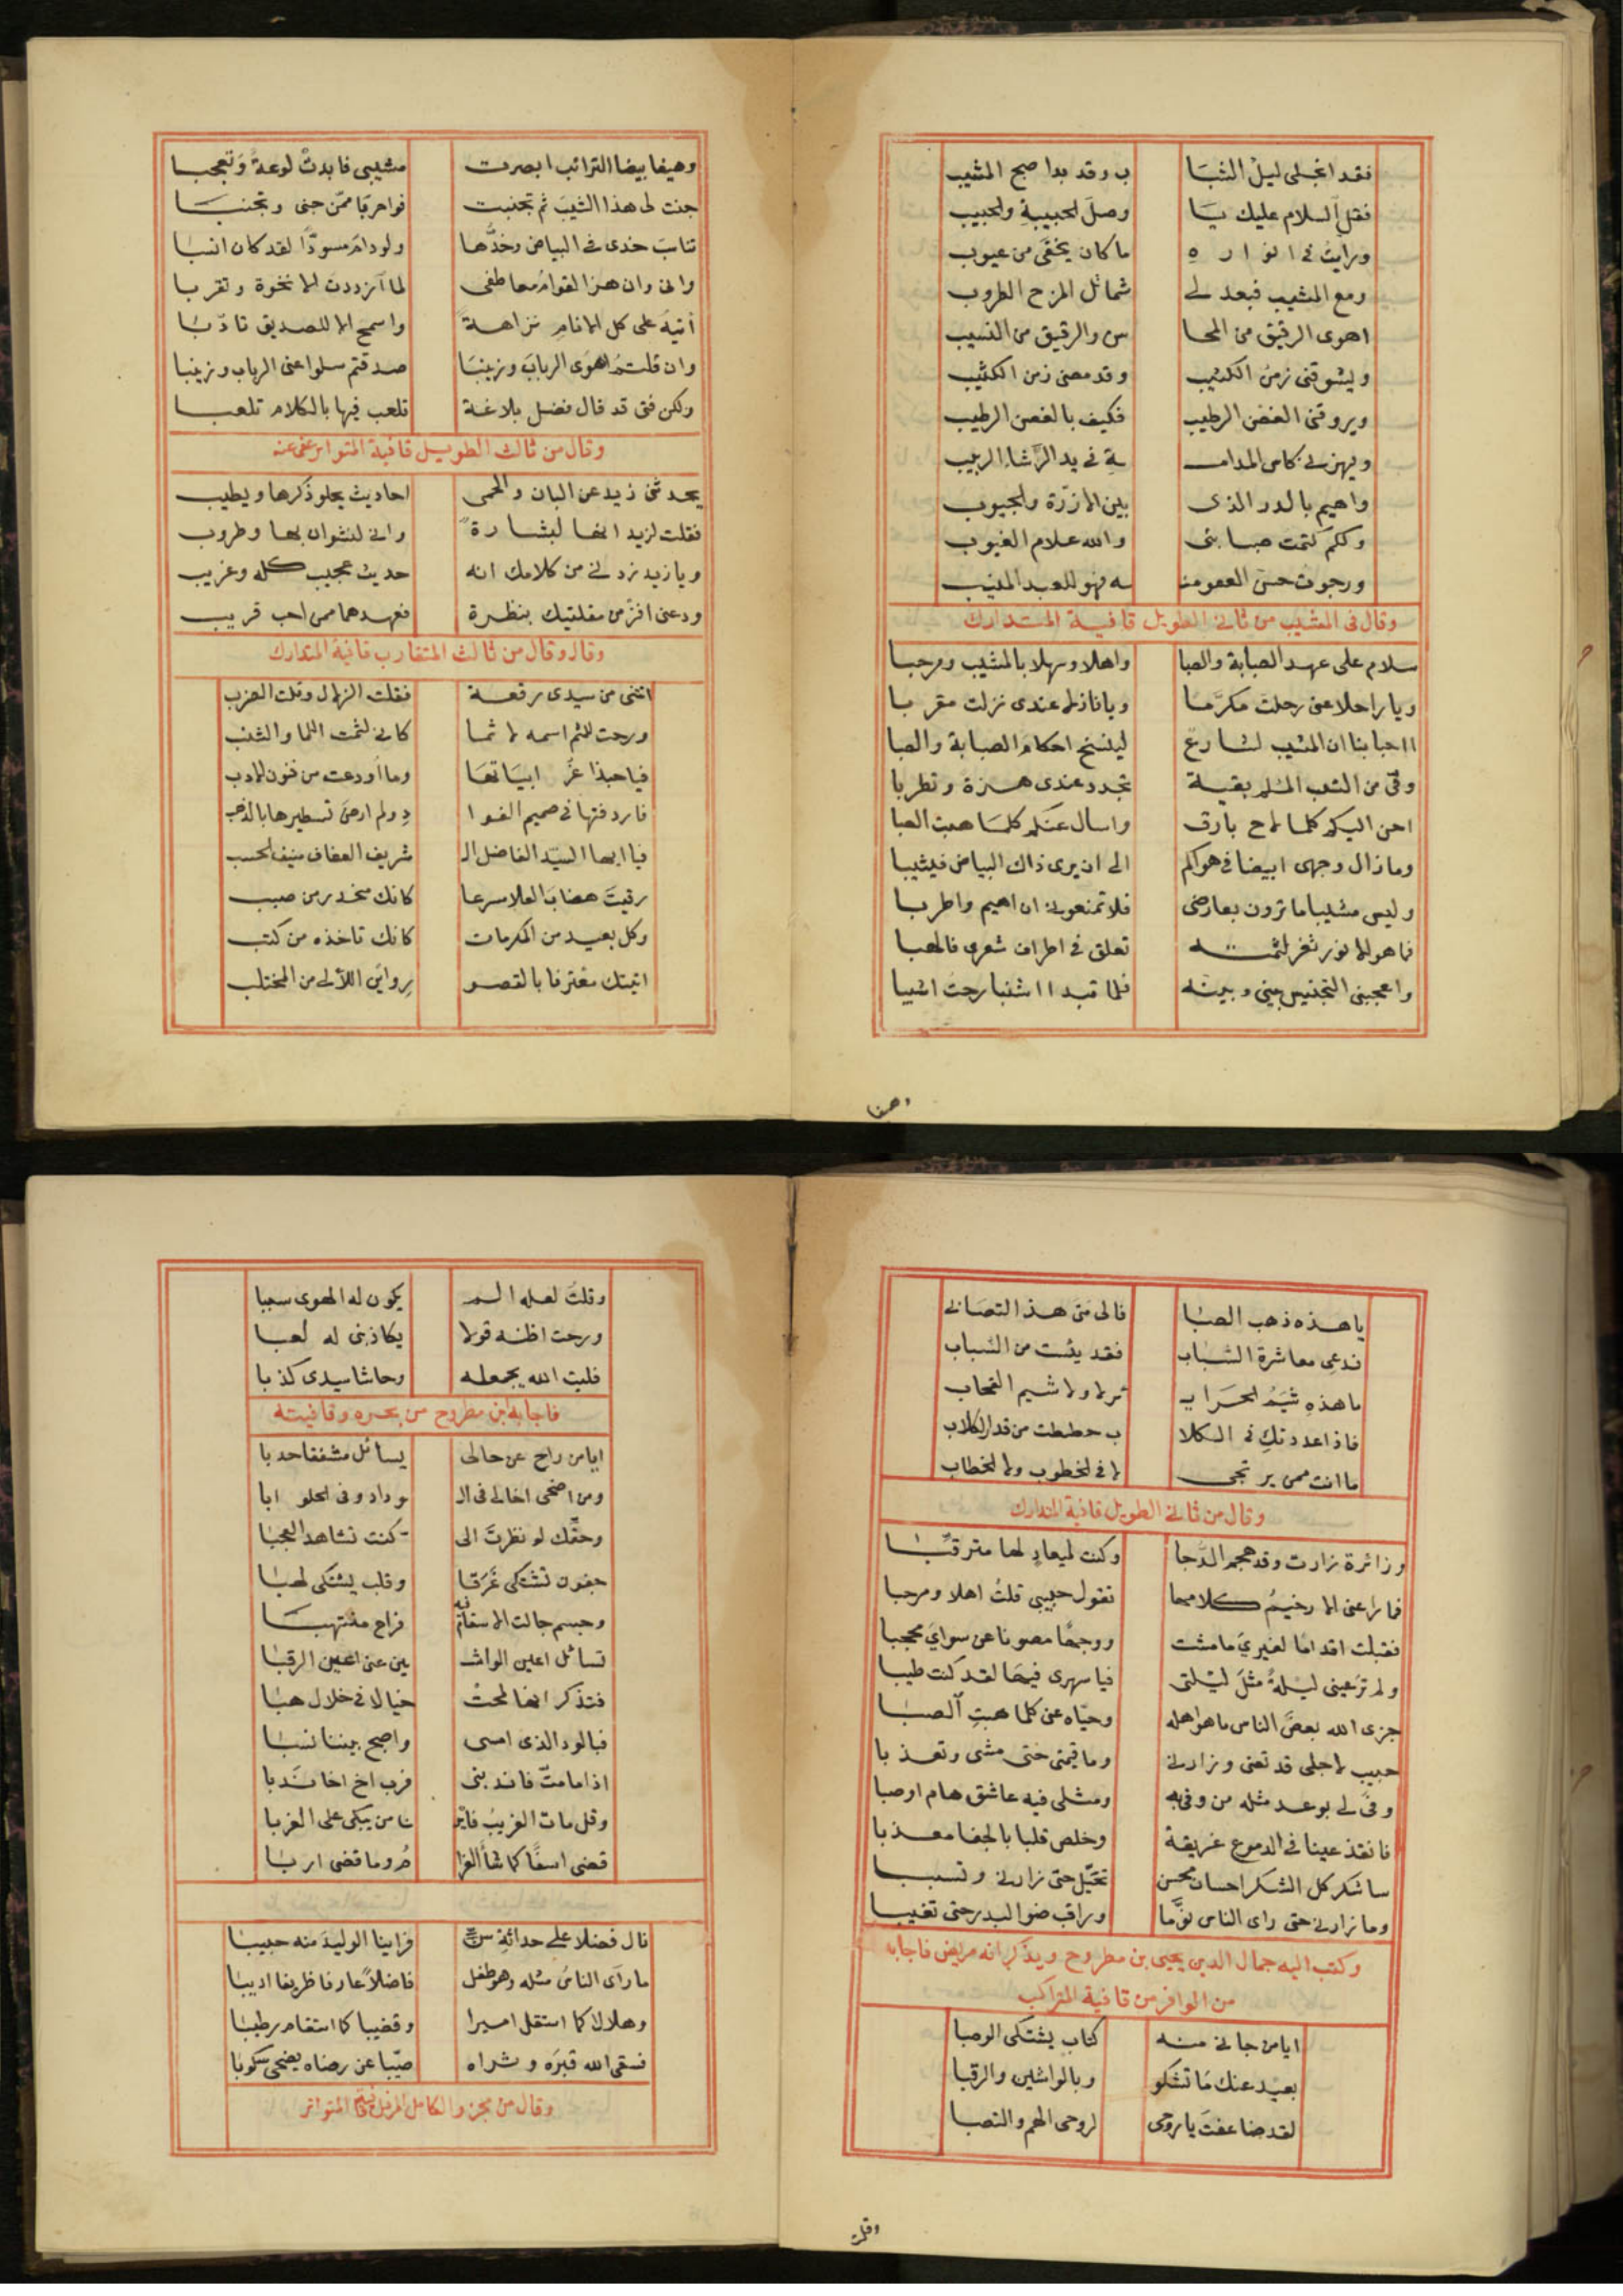 فقد انجلى ليل الشبا ب وقد بدا صبح المشيب
فقل السلام عليك يا وصل الحبيبة والحبيب
ورايت في انوا ره ما كان يخفى من عيوب
ومع المشيب فبعد لي شمائل المزح الطروب
اهوى الرقيق من المحا سن والرقيق من النسيب
ويشوقني زمن الكثيب وقد مضى زمن الكثيب
ويروقني الغصن الرطيب فكيف بالغصن الرطيب
ويهزني كاس المدامـ ـة في يد الرشاء الربيب
واهيم بالدر الذي بين الازرة والجيوب
ولكم كتمت صبابتي والله علام الغيوب
ورجوت حسن العفو منـ ـه فهو للعبد المنيب
وقال في المشيب من ثاني الطويل قافية المتدارك
سلام على عهد الصبابة والصبا واهلا وسهلا بالمشيب ومرحبا
ويا راحلا عني رحلت مكرّما ويا نازلا عندي نزلت مقربا
ااحبابنا ان المشيب لشارع لينسخ احكام الصبابة والصبا
وفي من الشيب الملم بقية تجدد عندي هزة وتطربا
احن اليكم كلما لاح بارق واسال عنكم كلما هبت الصبا
وما زال وجهي ابيضا في هواكم الى ان يرى ذاك البياض فيشيبا
وليس مشيبا ما ترون بعارضي فلا تمنعوني ان اهيم واطربا
فما هو الا نور ثغر لثمته تعلق في اطراف شعري فالهبا
واعجبني التجنيس بيني وبينه فلما تبدا اشنبا رحت اشيبا
وهيفا
وهيفا بيضا الترائب ابصرت مشيبي فابدت لوعة وتعجبا
جنت لي هذا الشيب ثم تجنبت فواحربا ممّن جنى وتجنبا
تناسب خدي في البياض وخدّها ولو دام مسودّا لقد كان انسبا
واني وان هز القوام معاطفي لما ازددت الا نخوة وتقربا
أتيه على كل الانام نزاهةً واسمح الا للصديق تادّبا
وان قلتم اهوى الرباب وزينبا صدقتم سلوا عني الرباب وزينبا
ولكن فتى قد قال فضل بلاغة تلعب فيها بالكلام تلعبا
وقال من ثالث الطويل قافية المتواتر عفى عنه
يحدثني زيد عن البان والحمى احاديث يحلو ذكرها ويطيب
فقلت لزيد انها لبشارةً واني لنشوان بها وطروب
ويا زيد زدني من كلامك انه حديث عجيب كله وغريب
ودعني افز من مقلتيك بنظرة فعهدهما ممن احب قريب
وقال وقال من ثالث المتقارب قافية المتدارك
اتتني من سيدي رقعة فقلت الزلال وقلت الضرب
ورحت للثم اسمه لاثما كاني لثمت اللما والشنب
فيا حبذا غرّ ابياتها وما أودعت من فنون الادب
فاردفتها في صميم الفوا دِ ولم ارض تسطيرها بالذهب
فيا ايها السيّد الفاضل الـ شريف العفاف منيف الحسب
رقيتَ هضابَ العلا سرعا كانك منحدر من صبب
وكل بعيد من المكرمات كانك تاخذه من كثب
اتيتك معترفا بالقصو رِ واين اللآلي من المختلب
يا هذه ذهب الصبا فالى متى هذا التصابي
فدعي معاشرة الشباب فقد يئست من الشباب
ما هذه شيَمُ الحراير لا ولا شيم القحاب
فاذا عددتكِ في الكلا ب حططت من قدر الكلاب
ما انت ممن يرتجى لا في الخطوب ولا الخطاب
وقال من ثاني الطويل قافية المتدارك
وزائرة زارت وقد هجم الدّجا وكنت لميعادٍ لها مترقّبا
فما راعني الا رخيمُ كلامها تقول حبيبي قلتُ اهلا ومرحبا
فقبلت اقداما لغيريَ ما مشت ووجهًا مصونا عن سوايَ محجبا
ولم ترَ عيني ليلةً مثلَ ليلتي فيا سهري فيها لقد كنت طيبا
جزى الله بعضَ الناس ما هو اهله وحيّاه عني كلما هبتِ الصبا
حبيب لاجلي قد تعنى وزارني وما قيمتي حتى مشى وتعذبا
وفى لي بوعد مثله من وفى به ومثلي فيه عاشق هام اوصبا
فانقذ عينا في الدموع غريقة وخلص قلبا بالجفا معذبا
ساشكر كل الشكر احسان محسن تحيّل حتى زارني وتسببا
وما زارني حتى راى الناس نوّما وراقب ضو البدر حتى تغيبا
وكتب اليه جمال الدين يحيى بن مطروح ويذكر انه مريض فاجابه
من الوافر من قافية المتراكب
ايا من جاني منه كتاب يشتكي الوصبا
بعيد عنك ما تشكو وبالواشين والرقبا
لقد ضاعفت يا روحي لروحي الهم والنصبا
وقلت
وقلتُ لعله الـم يكون له الهوى سببا
ورحت اظنه قولا يكاذبني له لعبا
فليت الله يجعله وحاشا سيدي كذبا
فاجابه ابن مطروح من بحره وقافيته
ايا من راح عن حالي يسائل مشفقا حدبا
ومن اضحى اخا لي في الـ ـوداد وفي الحلو ابا
وحقّك لو نظرتَ الى كنت تشاهد العجبا
جفون تشتكي غَرَقا وقلب يشتكي لهبا
وجسم جالت الاسقام فيه فراح منتهبا
تسائل اعين الواشـ ـين عني اعين الرقبا
فتذكر انها لمحت خيالا في خلال هبا
فبالود الذي امسى واصبح بيننا نسبا
اذا ما متّ فاندبني فرب اخ اخا ندبا
وقل مات الغريب فايـ ـنا من يبكي على الغربا
قضى اسفًا كما شأ الغرا مُ وما قضى اربا
نال فضلا على حداثة سن فراينا الوليد منه حبيبا
ما رآى الناسُ مثله وهو طفل فاضلاً عارفا ظريفا اديبا
وهلالا كما استقل اميرا وقضيبا كما استقام رطيبا
فسقى الله قبرَه وثراه صيّبا عن رضاه يضحى سكوبا
وقال من مجزو الكامل المرفل قافية المتواتر